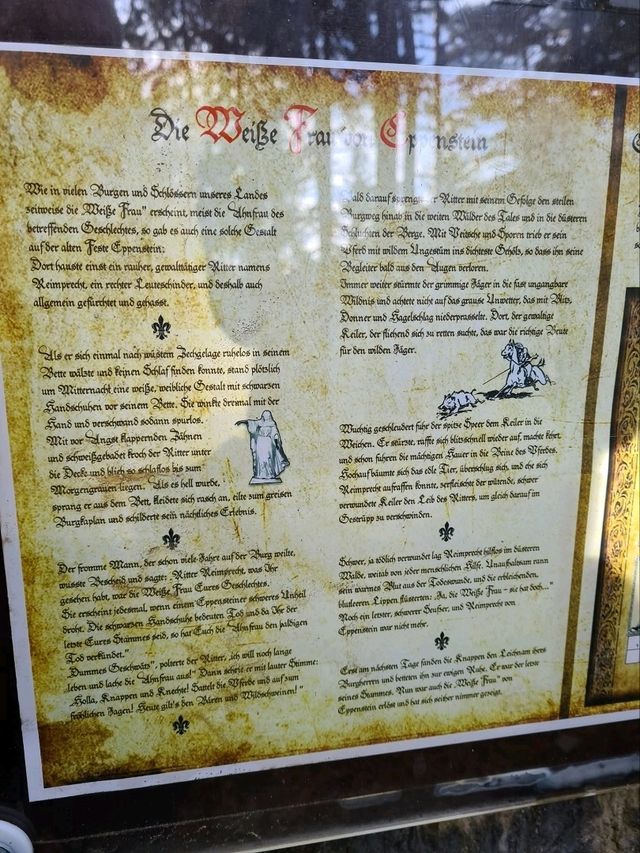 Die Weiße Frau von Eppenstein
Wie in vielen Burgen und Schlössern unseres Landes
zeitweise die „Weiße Frau" erscheint, meist die Ahnfrau des
betreffenden Geschlechtes, so gab es auch eine solche Gestalt
auf der alten Feste Eppenstein:
Dort hauste einst ein rauher, gewalttätiger Ritter namens
Reimprecht, ein rechter Leuteschinder, und deshalb auch
allgemein gefürchtet und gehasst.
Als er sich einmal nach wüstem Zechgelage ruhelos in seinem
Bette wälzte und keinen Schlaf finden konnte, stand plötzlich
um Mitternacht eine weiße, weibliche Gestalt mit schwarzen
Handschuhen vor seinem Bette. Sie winkte dreimal mit der
Hand und verschwand sodann spurlos.
Mit vor Angst klappernden Zähnen
und schweißgebadet kroch der Ritter unter
die Decke und blieb so schlaflos bis zum
Morgengrauen liegen. Als es hell wurde,
sprang er aus dem Bett, kleidete sich rasch an, eilte zum greisen
Burgkaplan und schilderte sein nächtliches Erlebnis.
Der fromme Mann, der schon viele Jahre auf der Burg weilte,
wusste Bescheid und sagte: „Ritter Reimprecht, was Ihr
gesehen habt, war die Weiße Frau Eures Geschlechtes.
Sie erscheint jedesmal, wenn einem Eppensteiner schweres Unheil
droht. Die schwarzen Handschuhe bedeuten Tod und da Ihr der
letzte Eures Stammes seid, so hat Euch die Ahnfrau den baldigen
Tod verkündet."
„Dummes Geschwätz", polterte der Ritter, „ich will noch lange
leben und lache die Ahnfrau aus!" Dann schrie er mit lauter Stimme:
„Holla, Knappen und Knechte! Sattelt die Pferde und auf zum
fröhlichen Jagen! Heute gilt's den Bären und Wildschweinen!"
Bald darauf sprengte der Ritter mit seinem Gefolge den steilen
Burgweg hinab in die weiten Wälder des Tales und in die düsteren
Schluchten der Berge. Mit Peitsche und Sporen trieb er sein
Pferd mit wildem Ungestüm ins dichteste Gehölz, so dass ihn seine
Begleiter bald aus den Augen verloren.
Immer weiter stürmte der grimmige Jäger in die fast ungangbare
Wildnis und achtete nicht auf das grause Unwetter, das mit Blitz,
Donner und Hagelschlag niederprasselte. Dort, der gewaltige
Keiler, der fliehend sich zu retten suchte, das war die richtige Beute
für den wilden Jäger.
Wuchtig geschleudert fuhr der spitze Speer dem Keiler in die
Weichen. Er stürzt, raffte sich blitzschnell wieder auf, macht kehrt,
und schon fuhren die mächtigen Hauer in die Beine des Pferdes.
Hochauf bäumte sich das edle Tier, überschlug sich, und ehe sich
Reimprecht aufraffen konnte, zerfleischte der wütende, schwer
verwundete Keiler den Leib des Ritters, um gleich darauf im
Gestrüpp zu verschwinden.
Schwer, ja tödlich verwundet lag Reimprecht hilflos im düsteren
Walde, weitab von jeder menschlichen Hilfe. Unaufhaltsam rann
sein warmes Blut aus der Todeswunde, und die erbleichenden,
blutleeren Lippen flüsterten: „Ja, die Weiße Frau – sie hat doch..."
Noch ein letzter, schwerer Seufzer, und Reimprecht von
Eppenstein war nicht mehr.
Erst am nächsten Tage fanden die Knappen den Leichnam ihres
Burgherren und betteten ihn zur ewigen Ruhe. Er war der letzte
seines Stammes. Nun war auch die „Weiße Frau" von
Eppenstein erlöst und hat sich seither nimmer gezeigt.